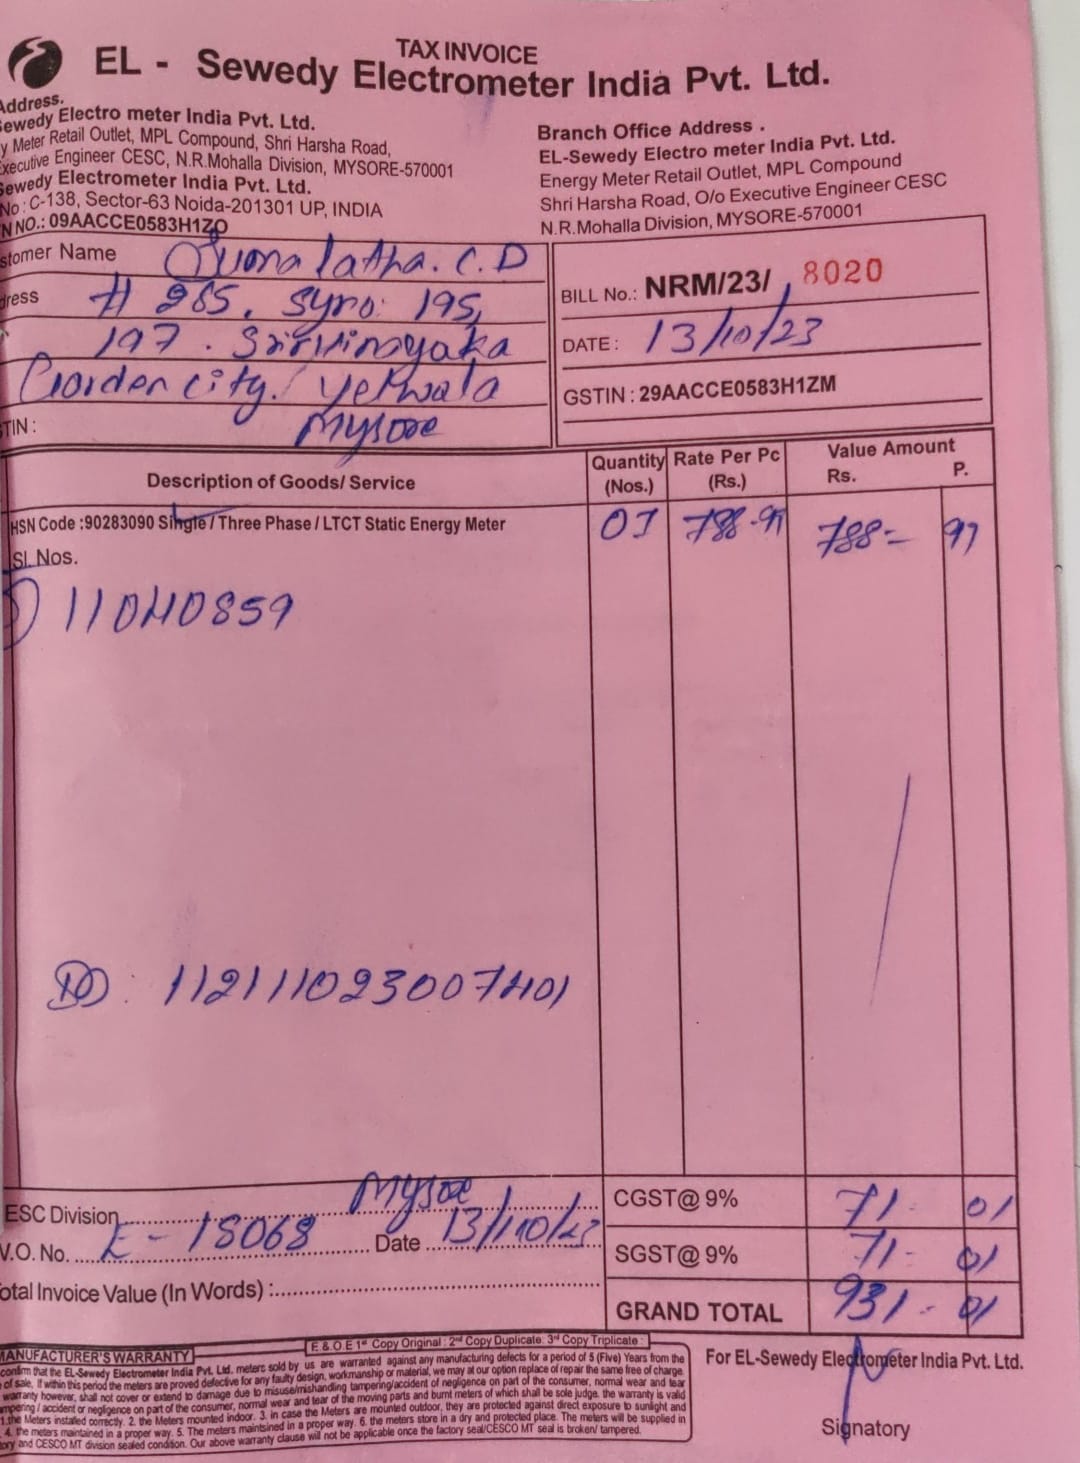 TAX INVOICE
EL - Sewedy Electrometer India Pvt. Ltd.
Address.
Sewedy Electro meter India Pvt. Ltd.
y Meter Retail Outlet, MPL Compound, Shri Harsha Road,
xecutive Engineer CESC, N.R.Mohalla Division, MYSORE-570001
Sewedy Electrometer India Pvt. Ltd.
No : C-138, Sector-63 Noida-201301 UP, INDIA
N NO.: 09AACCE0583H1ZO
Branch Office Address .
EL-Sewedy Electro meter India Pvt. Ltd.
Energy Meter Retail Outlet, MPL Compound
Shri Harsha Road, O/o Executive Engineer CESC
N.R.Mohalla Division, MYSORE-570001
stomer Name Sumalatha. C.D
dress # 265, Syno: 195,
197. Srivinayaka
Garden city. Yelwala
TIN : Mysore
BILL No.: NRM/23/ 8020
DATE : 13/10/23
GSTIN : 29AACCE0583H1ZM
Description of Goods/ Service Quantity (Nos.) Rate Per Pc (Rs.) Value Amount Rs. P.
HSN Code :90283090 Single / Three Phase / LTCT Static Energy Meter 01 788-97 788= 97
Sl. Nos.
11040859
DD : 112111023007401
ESC Division Mysore CGST@ 9% 71- 01
V.O. No. E-15068 Date 13/10/23 SGST@ 9% 71- 01
otal Invoice Value (In Words) : GRAND TOTAL 931- 01
E & O.E 1st Copy Original : 2nd Copy Duplicate: 3rd Copy Triplicate :
MANUFACTURER'S WARRANTY
confirm that the EL-Sewedy Electrometer India Pvt. Ltd. meters sold by us are warranted against any manufacturing defects for a period of 5 (Five) Years from the
of sale. If within this period the meters are proved defective for any faulty design, workmanship or material, we may at our option replace of repair the same free of charge.
warranty however, shall not cover or extend to damage due to misuse/mishandling tampering/accident of negligence on part of the consumer, normal wear and tear
mpering / accident or negligence on part of the consumer, normal wear and tear of the moving parts and burnt meters of which shall be sole judge. the warranty is valid
1.the Meters installed correctly. 2. the Meters mounted indoor. 3. in case the Meters are mounted outdoor, they are protected against direct exposure to sunlight and
4. the meters maintained in a proper way. 5. The meters maintsined in a proper way. 6. the meters store in a dry and protected place. The meters will be supplied in
ory and CESCO MT division sealed condition. Our above warranty clause will not be applicable once the factory seal/CESCO MT seal is broken/ tampered.
For EL-Sewedy Electrometer India Pvt. Ltd.
Signatory